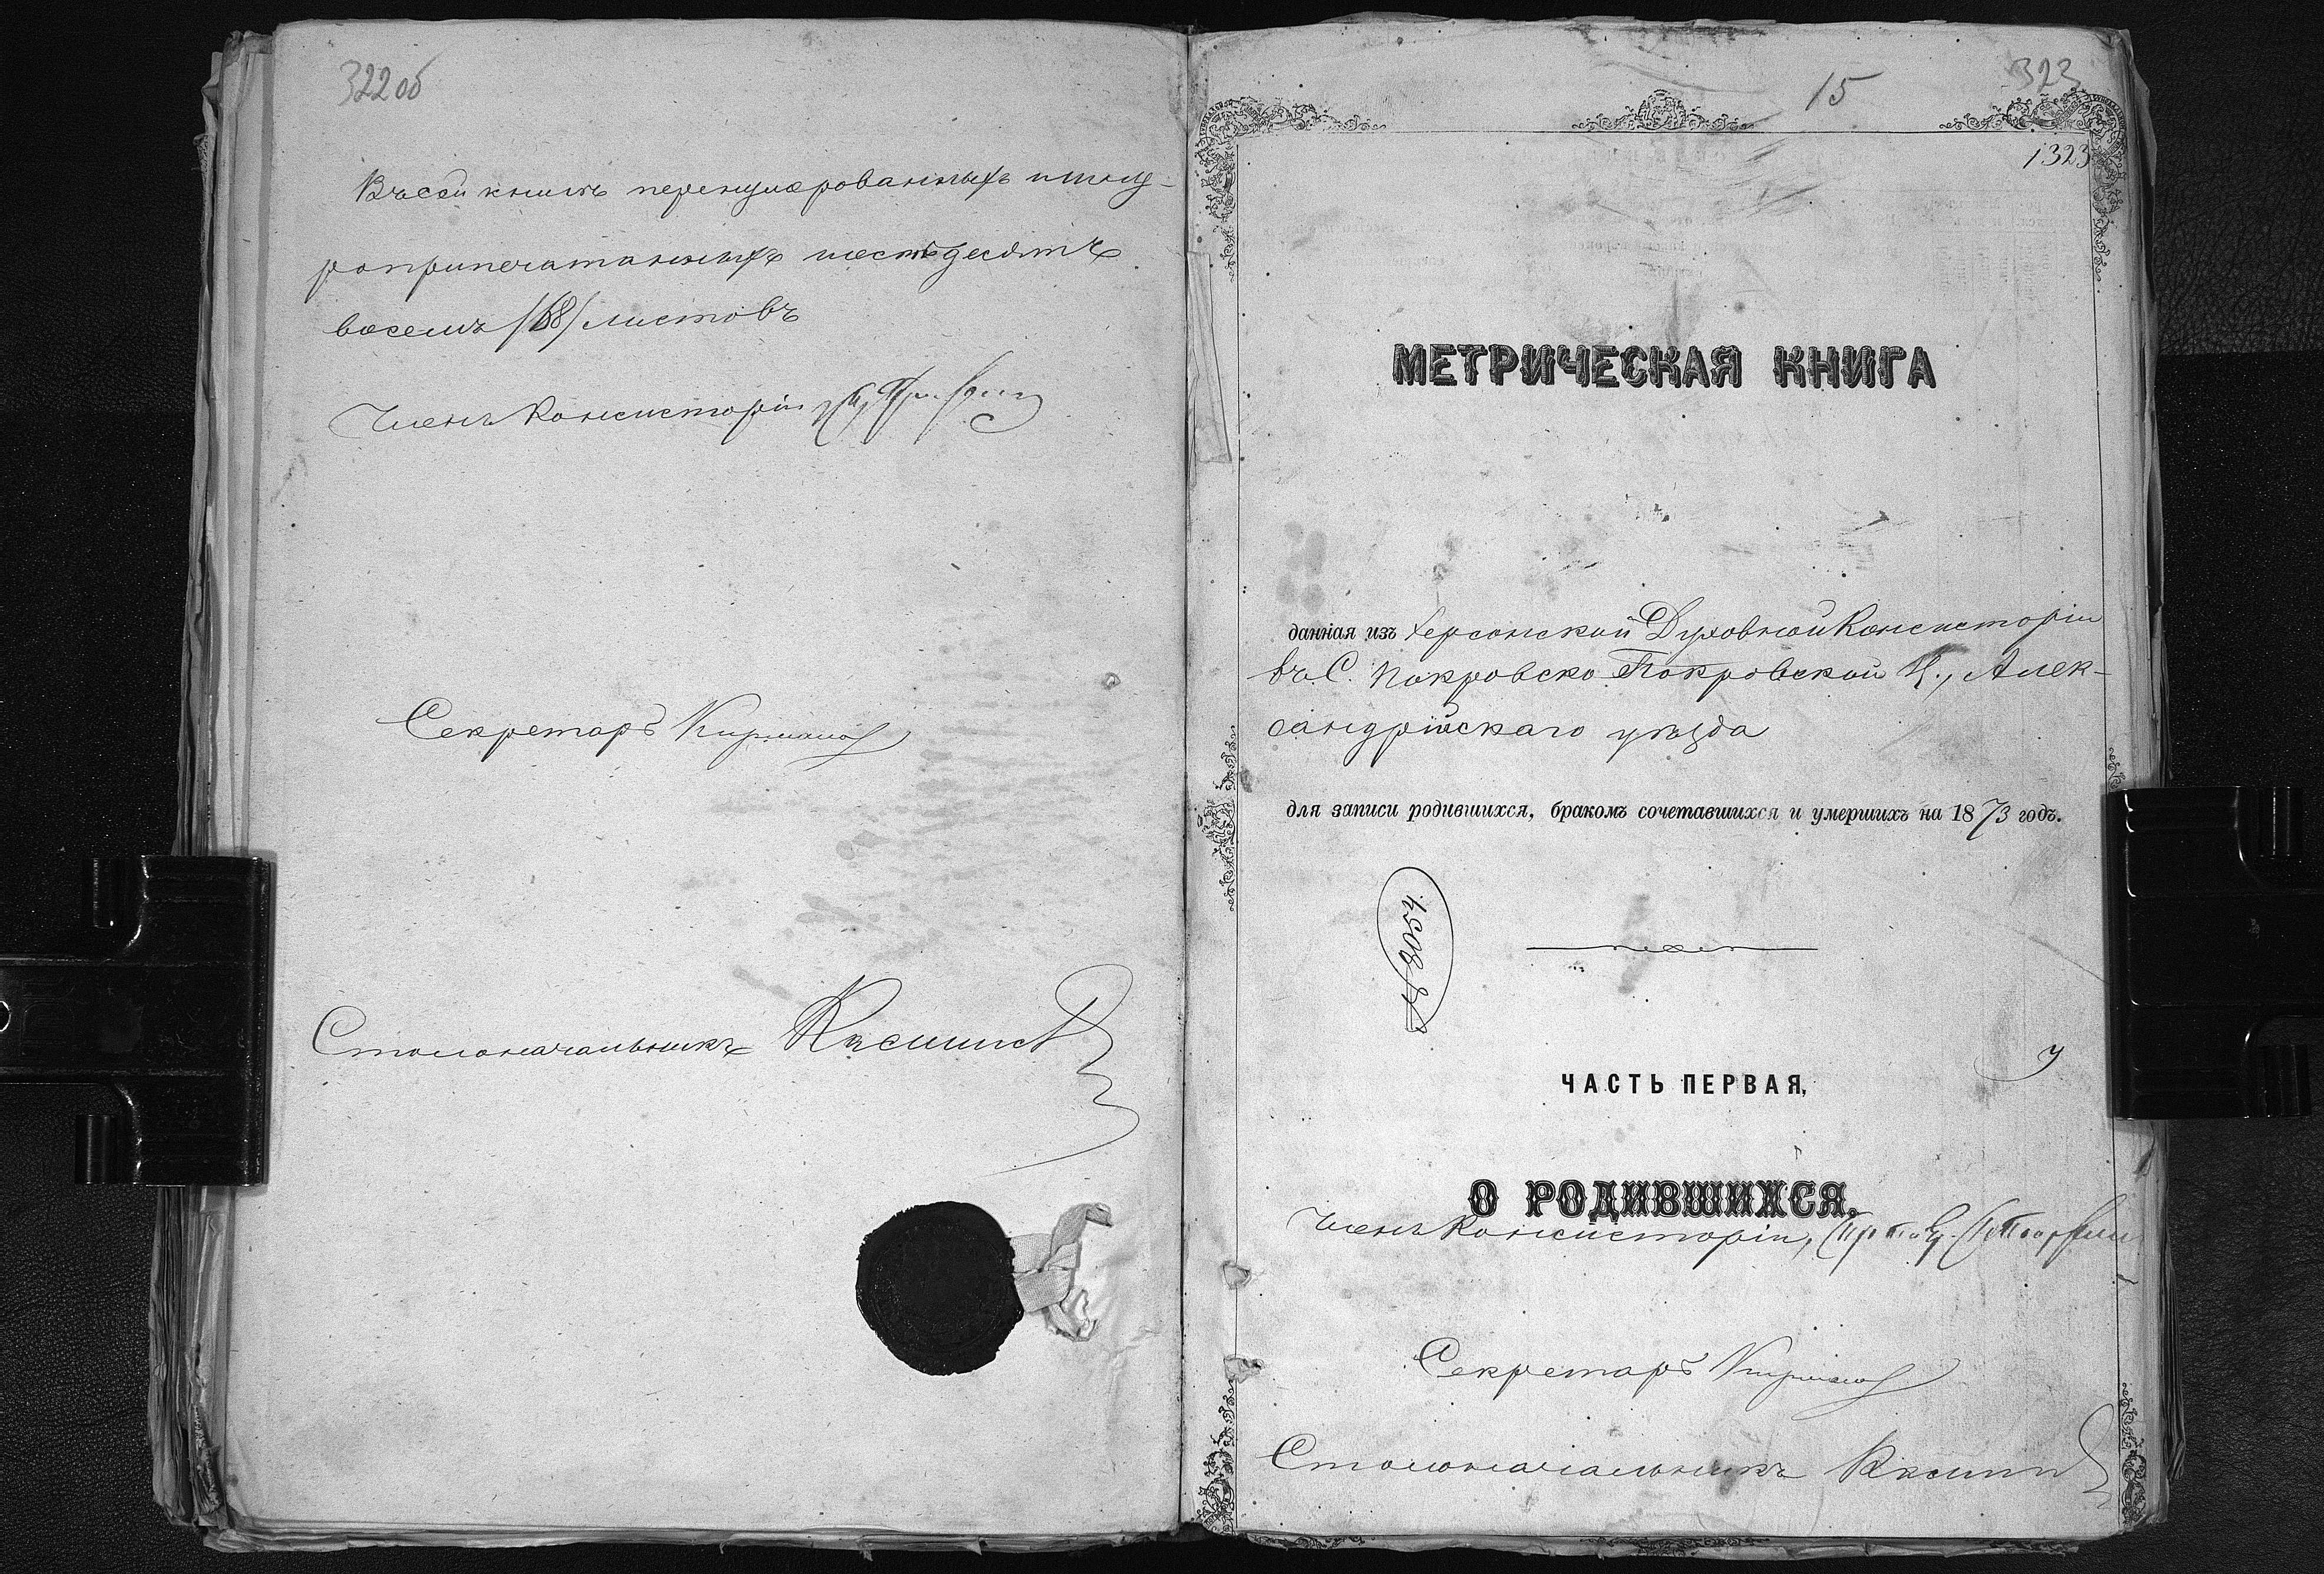 322 об
Въ сей книгѣ перенумерованныхъ и шну-
роприпечатанныхъ шестьдесятъ
восемь /68/ листовъ
Членъ Консисторіи
Секретарь
Столоначальникъ
15
323
1323
МЕТРИЧЕСКАЯ КНИГА
данная изъ Херсонской Духовной Консисторіи
въ С. Покровско Покровской Ц., Алек-
сандрійскаго уѣзда
для записи родившихся, бракомъ сочетавшихся и умершихъ на 1873 годъ.
ЧАСТЬ ПЕРВАЯ,
О РОДИВШИХСЯ.
Членъ Консисторіи,
Секретарь
Столоначальникъ